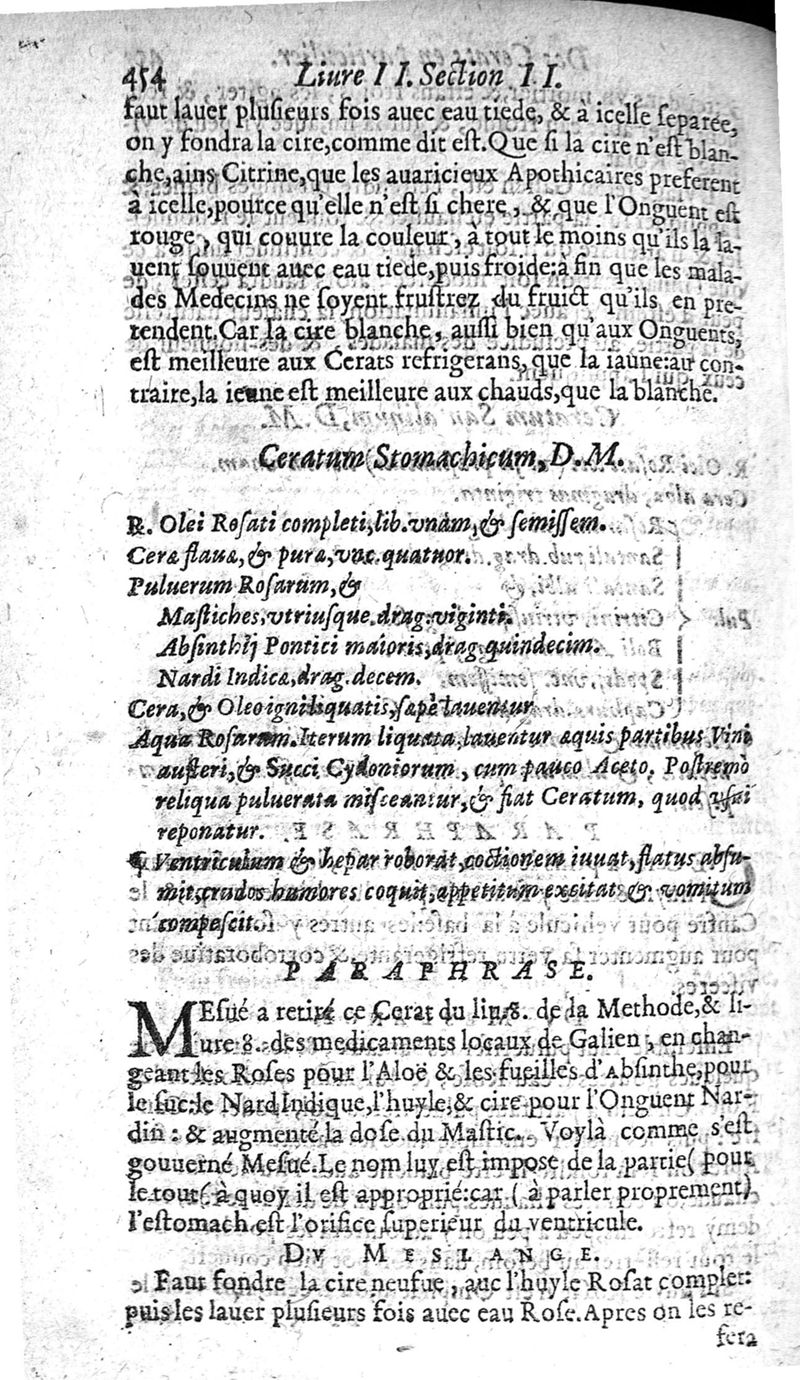 454 Liure II. Section II.
faut lauer plusieurs fois auec eau tiede, & à icelle separée,
on y fondra la cire, comme dit est. Que si la cire n'est blan-
che, ains Citrine, que les auaricieux Apothicaires preferent
à icelle, pource qu'elle n'est si chere, & que l'Onguent est
rouge, qui couure la couleur, à tout le moins qu'ils la la-
uent souuent auec eau tiede, puis froide: à fin que les mala-
des Medecins ne soyent frustrez du fruict qu'ils en pre-
tendent. Car la cire blanche, aussi bien qu'aux Onguents,
est meilleure aux Cerats refrigerans, que la iaune: au con-
traire, la ieune est meilleure aux chauds, que la blanche.
Ceratum Stomachicum, D. M.
R. Olei Rosati completi, lib. vnam, & semissem.
Ceræ flauæ, & puræ, vnc. quatuor.
Puluerum Rosarum, &
Mastiches, vtriusque, drag. viginti.
Absinthij Pontici maioris, drag. quindecim.
Nardi Indicæ, drag. decem.
Cera, & Oleo igni liquatis, sæpè lauentur
Aqua Rosarum. Iterum liquata, lauentur æquis partibus Vini
austeri, & Succi Cydoniorum, cum pauco Aceto. Postremò
reliqua puluerata misceantur, & fiat Ceratum, quod vsui
reponatur.
¶ Ventriculum & hepar roborat, coctionem iuuat, flatus absu-
mit, crudos humores coquit, appetitum excitat & vomitum
compescit.
PARAPHRASE.
MEsué a retiré ce Cerat du liu. 8. de la Methode, & li-
ure 8. des medicaments locaux de Galien, en chan-
geant les Roses pour l'Aloë & les fueilles d'Absinthe, pour
le suc: le Nard Indique, l'huyle, & cire pour l'Onguent Nar-
din: & augmenté la dose du Mastic. Voylà comme s'est
gouuerné Mesué. Le nom luy est imposé de la partie ( pour
le tout ( à quoy il est approprié: car ( à parler proprement)
l'estomach est l'orifice superieur du ventricule.
DV MESLANGE.
Faut fondre la cire neufue, auc l'huyle Rosat complet:
puis les lauer plusieurs fois auec eau Rose. Apres on les re-
fera